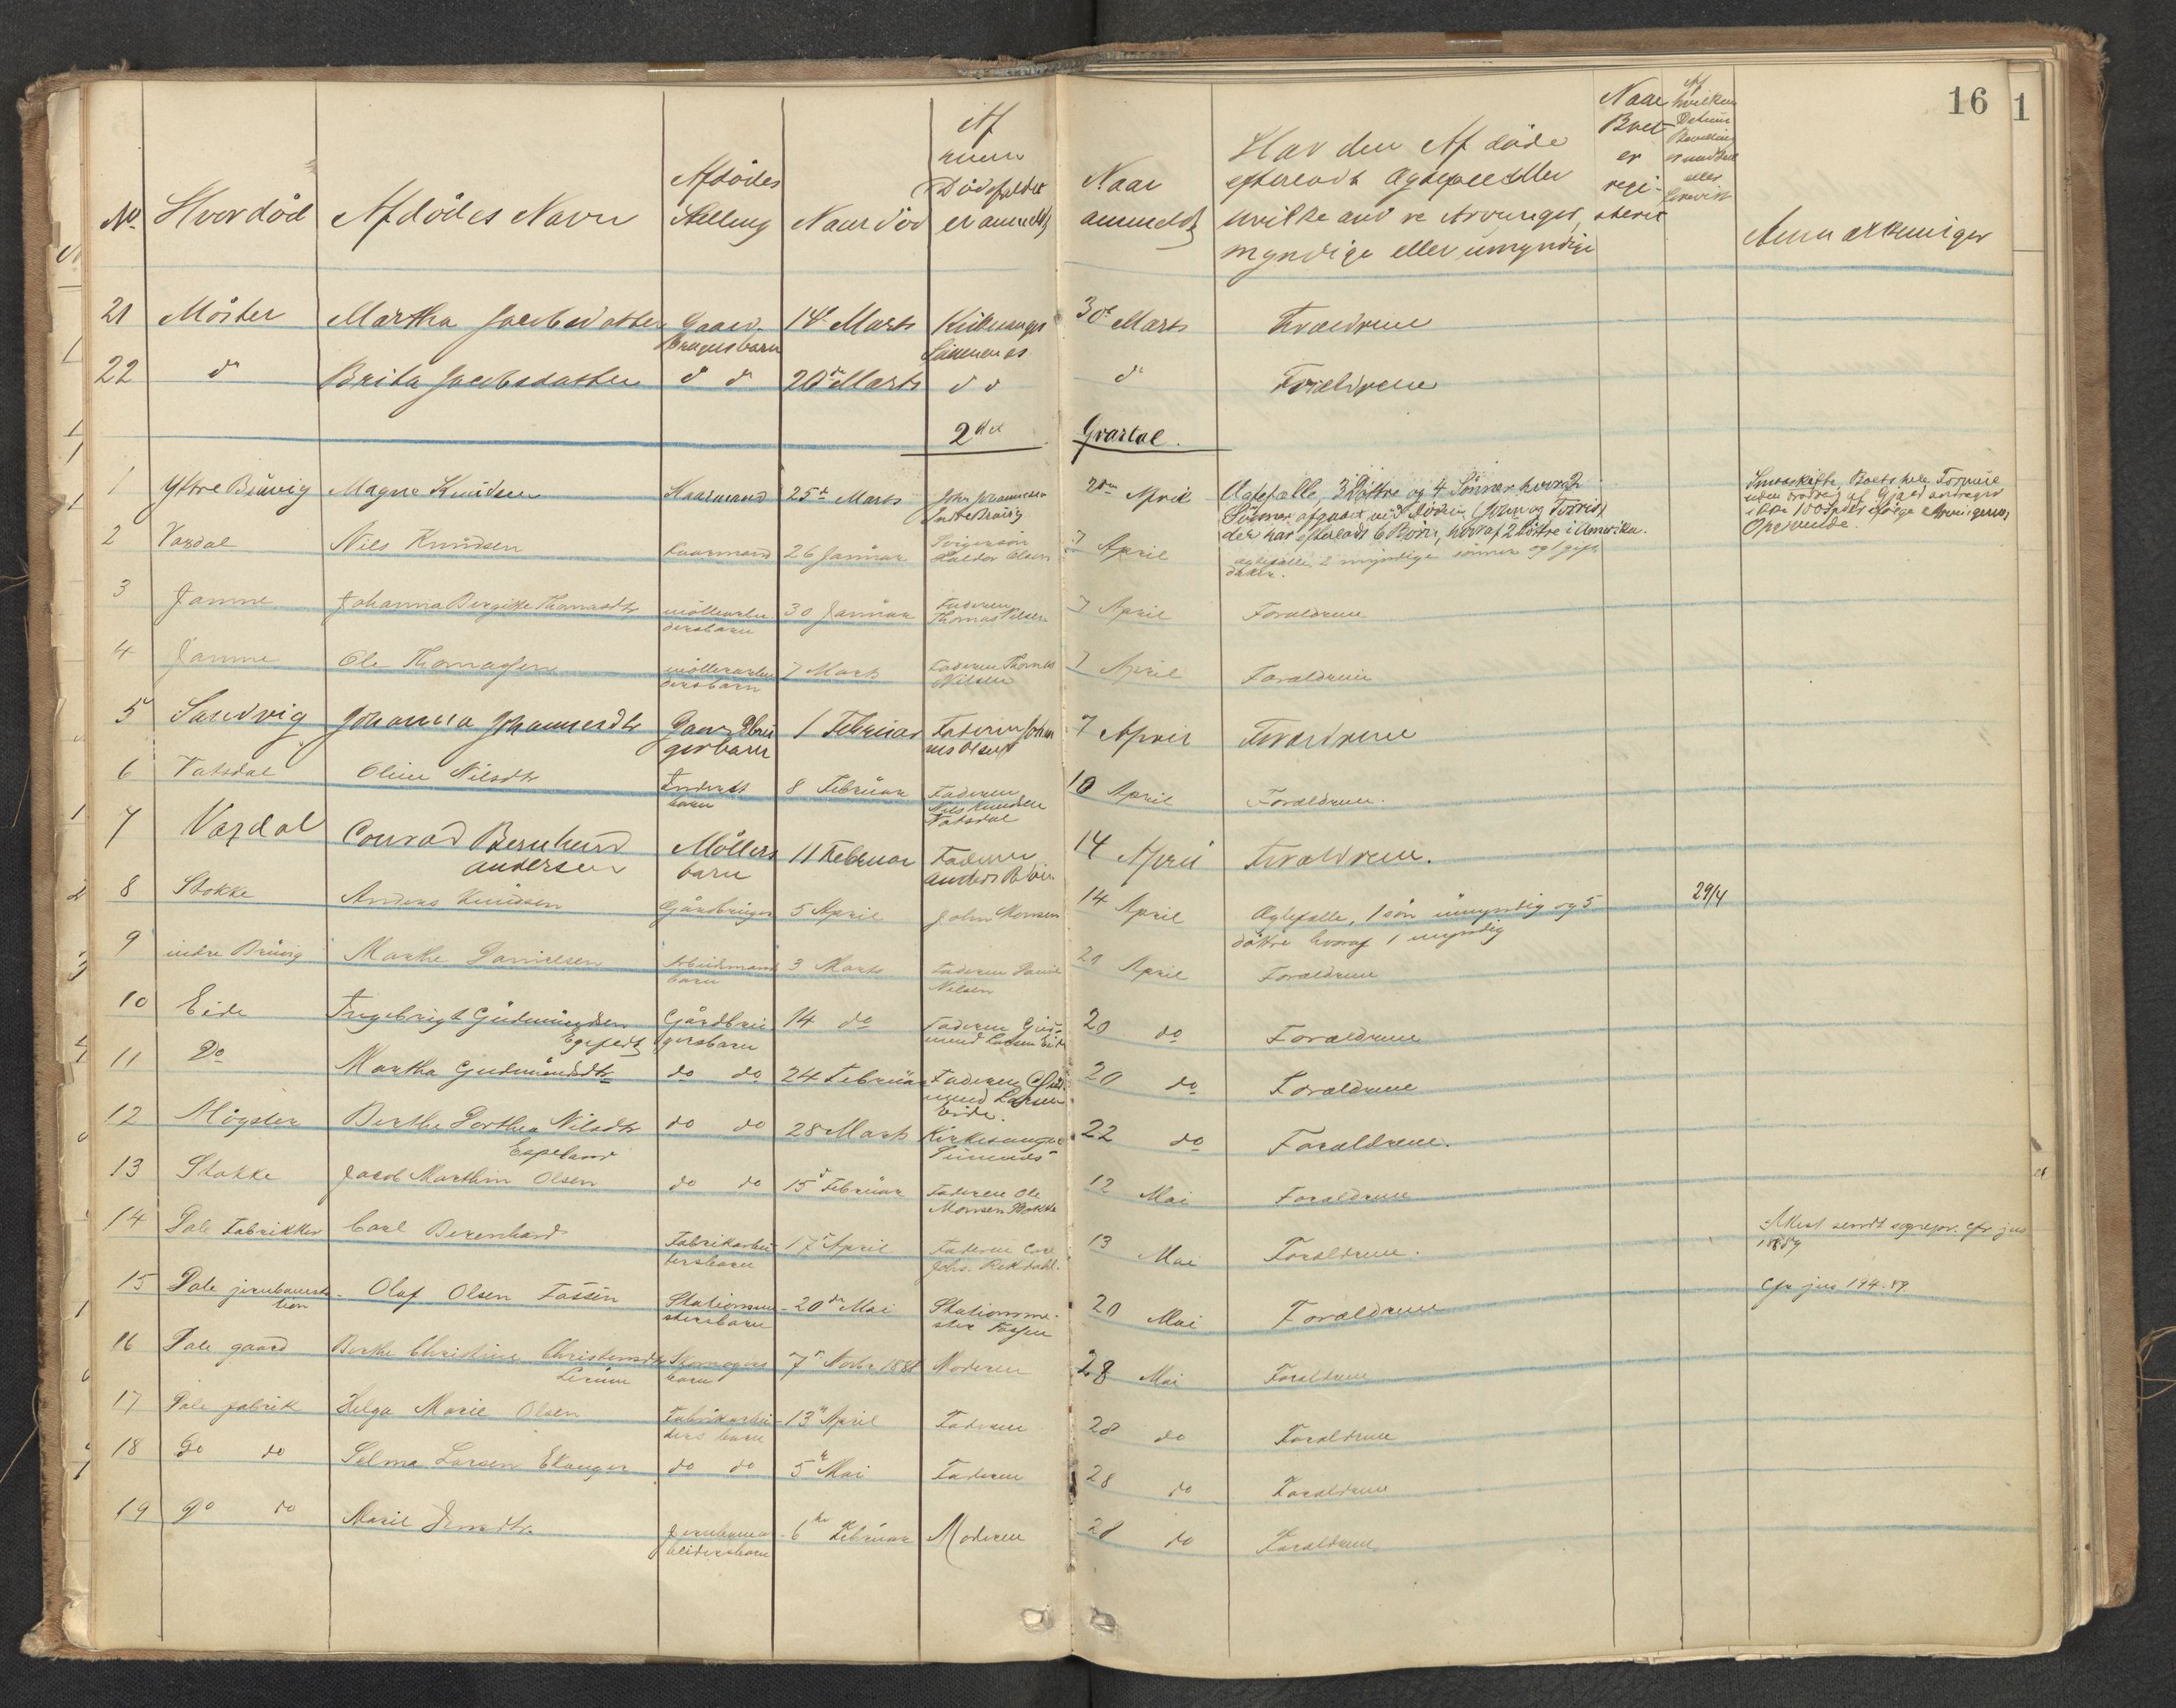 16
1
No. Hvor død Afdødes Navn Afdødes Stilling Naar død Af hvem Dødsfaldet er anmeldt Naar anmeldt Har den Afdøde efterladt Ægtefælle eller hvilke andre Arvinger, myndige eller umyndige Naar Boet er registeret Anmærkninger
21 Møster Martha Jacobsdatter Gaardbrugersbarn 14de Marts Kirkesanger Simenæs 30te Marts Forældrene
22 do Brita Jacobsdatter do do 20de Marts do do do Forældrene
2det Qvartal.
1 Yttre Bruvig Magne Knudsen Kaarmand 25de Marts John Johannesen Indre Bruvig April Ægtefælle, 3 Døttre og 4 Sønner hvoraf 2
Sønner afgaaet ved Døden (John og Torris)
der har efterladt 6 Børn, hvoraf 2 Døttre i Amerika.
2 Vazdal Nils Knudsen Kaarmand 26 Januar Haldor Olsen 7 April Ægtefælle, 2 myndige sønner og 1 gift datter.
3 Jamne Johanna Bergitte Thomasdtr møllearbeidersbarn 30 Januar Faderen Thomas Nilsen 7 April Forældrene
4 Jamne Ole Thomassen møllearbeidersbarn 7 Marts Faderen Thomas Nilsen 7 April Forældrene
5 Sandvig Johanna Johannesdtr Gaardbrugerbarn 1 Februar Faderen Johannes Olsen 7 April Forældrene
6 Vatsdal Oline Nilsdtr barn 8 Februar Faderen Nils Knudsen Vatsdal 10 April Forældrene.
7 Vazdal Conrad Bernhard Andersen Møllers barn 11 Februar Faderen Anders 14 April Forældrene.
8 Stokke Anders Knudsen Gårdbruger 5 April John Monsen 14 April Ægtefælle, 1 søn umyndig og 5
døttre hvoraf 1 umyndig 29/4
9 indre Bruvig Marthe Danielsen Arbeidsmand barn 3 Marts Faderen Daniel Nilsen 20 April Forældrene
10 Eide Ingebrigt Gudmundsen Gårdbrugersbarn 14 do Faderen Gudmund Larsen Eide 20 do Forældrene
11 Do Martha Gudmundsdtr do do 24 Februar Faderen Gudmund Larsen Eide. 20 do Forældrene
12 Møgster Berthe Dorthea Nilsdtr Espeland do do 28 Marts Kirkesanger Simenæs 22 do Forældrene.
13 Stokke Jacob Marthin Olsen do do 15d Februar Faderen Ole Monsen Stokke 12 Mai Forældrene
14 Dale Fabrikker Carl Berenhard Fabrikarbeidersbarn 17de April Faderen Carl Johs. Rekdahl. 13 Mai Forældrene.
15 Dale jernbanestation Olaf Olsen Fossen Stationsmestersbarn 20de Mai Stationsmester Fossen 20 Mai Forældrene Cfr jus 194.89.
16 Dale gaard Berthe Christine Christensdtr Skomagers barn 7de Novbr 1888 Moderen 28 Mai Forældrene
17 Dale fabrik Helga Marie Olsen Fabrikarbeiders barn 13de April Faderen 28 do Forældrene
18 Do do Selma Larsen Ekanger do do 5te Mai Faderen 28 do Forældrene
19 Do do Marie Jernbanearbeidersbarn 6te Februar Moderen 28 do Forældrene